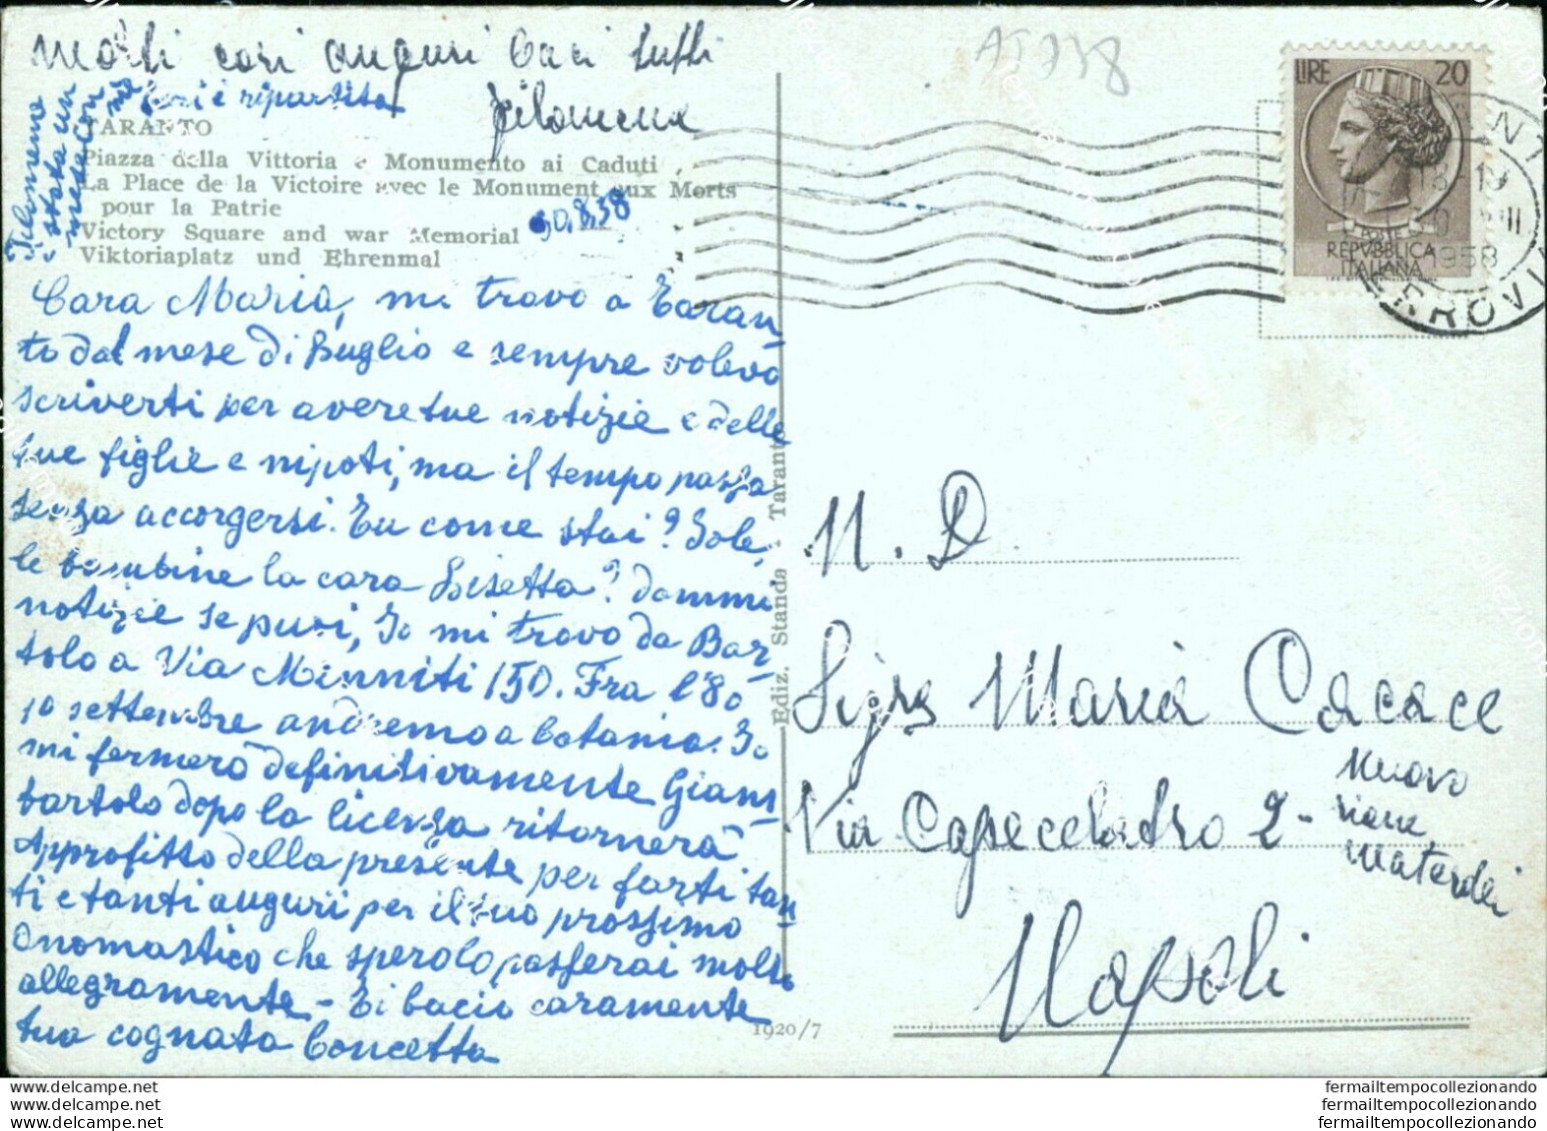 Molti cari auguri baci tutti
Filomena
Filomena
è stata un
mese con
me
ieri è ripartita
TARANTO
Piazza della Vittoria e Monumento ai Caduti
La Place de la Victoire avec le Monument aux Morts
pour la Patrie
Victory Square and war Memorial
Viktoriaplatz und Ehrenmal
30.8.58
Cara Maria, mi trovo a Taran
to dal mese di Luglio e sempre volevo
scriverti per avere tue notizie e delle
tue figlie e nipoti, ma il tempo passa
senza accorgersi. Tu come stai? Iole,
le bambine la cara Lisetta? dammi
notizie se puoi, Io mi trovo da Bar
tolo a Via Minniti 150. Fra l'8 o
10 settembre andremo a Catania. Io
mi fermerò definitivamente Giam
bartolo dopo la licenza ritornerà
Approfitto della presente per farti tan
ti e tanti auguri per il tuo prossimo
Onomastico che spero lo passerai molto
allegramente - Ti bacio caramente
tua cognata Concetta
Ediz. Standa - Taranto
1920/7
AT738
LIRE 20
POSTE
REPVBBLICA
ITALIANA
18-19
1958
FERROVIA
N. D
Sig.ra Maria Cacace
Via Capecelatro 2 -
Nuovo
rione
Materdei
Napoli
delcampe.net
delcampe.net
delcampe.net
fermailtempocollezionando
fermailtempocollezionando
fermailtempocollezionando